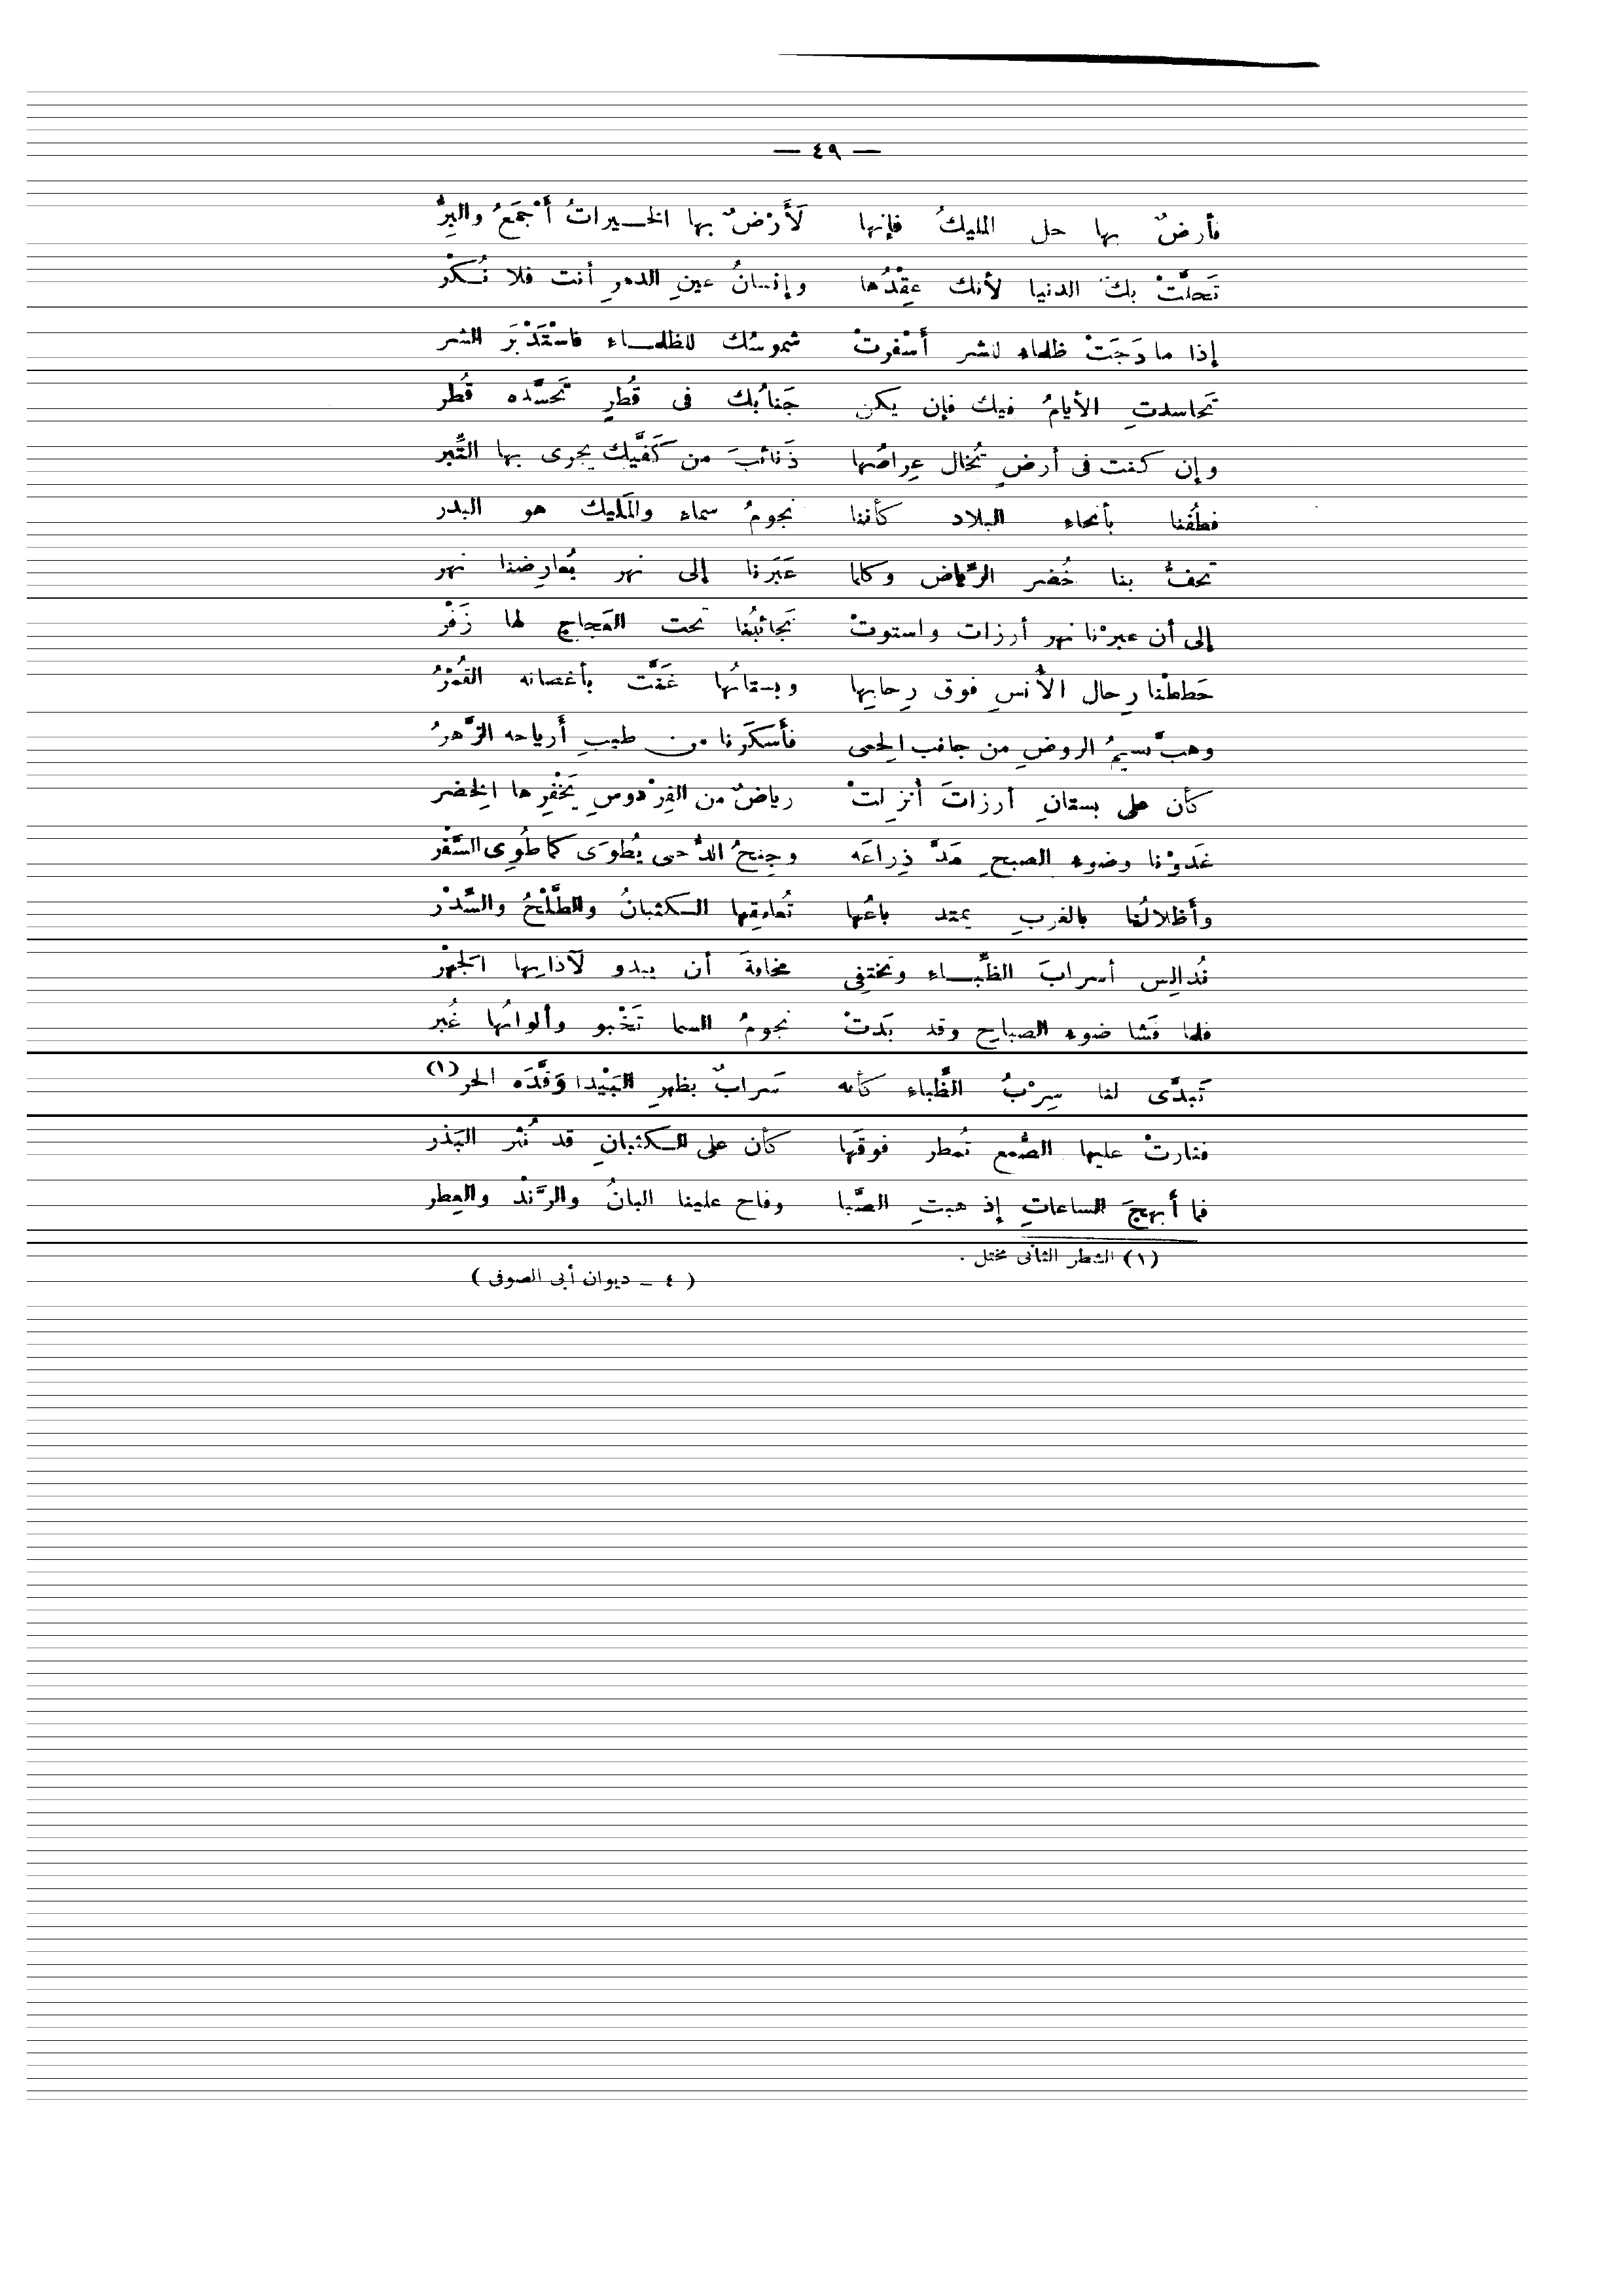 — ٤٩ —
فأرضٌ بها حل المليكُ فإنها لَأَرْضٌ بها الخيراتُ أَجْمَعُ والبِرُّ
تَحلَّتْ بكَ الدنيا لأنك عِقْدُها وإنسانُ عينِ الدهرِ أنت فلا نُكْر
إذا ما دَجَتْ ظلماء لشر أَسْفرتْ شموسُك للظلماء فاسْتَدْبَرَ الشر
تحَاسدتِ الأيامُ فيك فإن يكن جَنابُك فى قُطرٍ تَحسَّده قُطر
وإن كنت فى أرضٍ تُخال عِراصُها ذَنائبَ من كَفَّيك يجرى بها التِّبر
فطُفنا بأنحاء البلاد كأننا نجومُ سماء والمَليك هو البدر
تحفُّ بنا خُضر الرِّياض وكلما عَبَرنا إلى نهر يُعارِضنا نهر
إلى أن عبرْنا نهر أرزات واستوتْ نَجائبُنا تحت العَجاج لها زَفْر
حَططْنا رِحال الأُنسِ فوق رِحابِها وبستانُها غَنَّت بأغصانه القُمْرُ
وهبَّ نسيمُ الروضِ من جانب الحِمى فأسكَرنا من طيبِ أَرياحه الزَّهرُ
كأن على بستانِ أرزاتَ أنزلتْ رياضٌ من الفِرْدوسِ يَخْفِرها الخِضر
غَدوْنا وضوء الصبحِ مَدَّ ذِراعَه وجِنحُ الدُّجى يُطوَى كما طُوِى السَّفْر
وأظلالُنا بالغربِ يمتد باعُها تُعانِقها الكثبانُ والطَّلْحُ والسِّدْر
نُدالِس أسرابَ الظِّباء ونختفِى مخافةَ أن يبدو لآذانِها الجَهْر
فلما فَشا ضوء الصباح وقد بَدتْ نجومُ السما تَخْبو وألوانُها غُبر
تَبدَّى لنا سِرْبُ الظِّباء كأنه سَرابٌ بظهرِ البَيْدا وَقَّدَه الحر (١)
فثارتْ عليها الصُّمع تُمطر فوقَها كأن على الكثبانِ قد نُثر البَذر
فما أَبهجَ الساعاتِ إذ هبتِ الصَّبا وفاح علينا البانُ والرَّنْد والعِطر
(١) الشطر الثانى مختل .
( ٤ — ديوان أبى الصوفى )